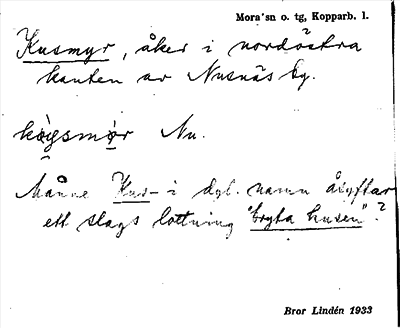 Mora'sn o. tg, Kopparb. l.
Kusmyr, åker i nordöstra
kanten av Nusnäs by.
kògsmør Nu.
Månne Kus- i dyl. namn åsyftar
ett slags lottning "bryta husen"?
Bror Lindén 1933